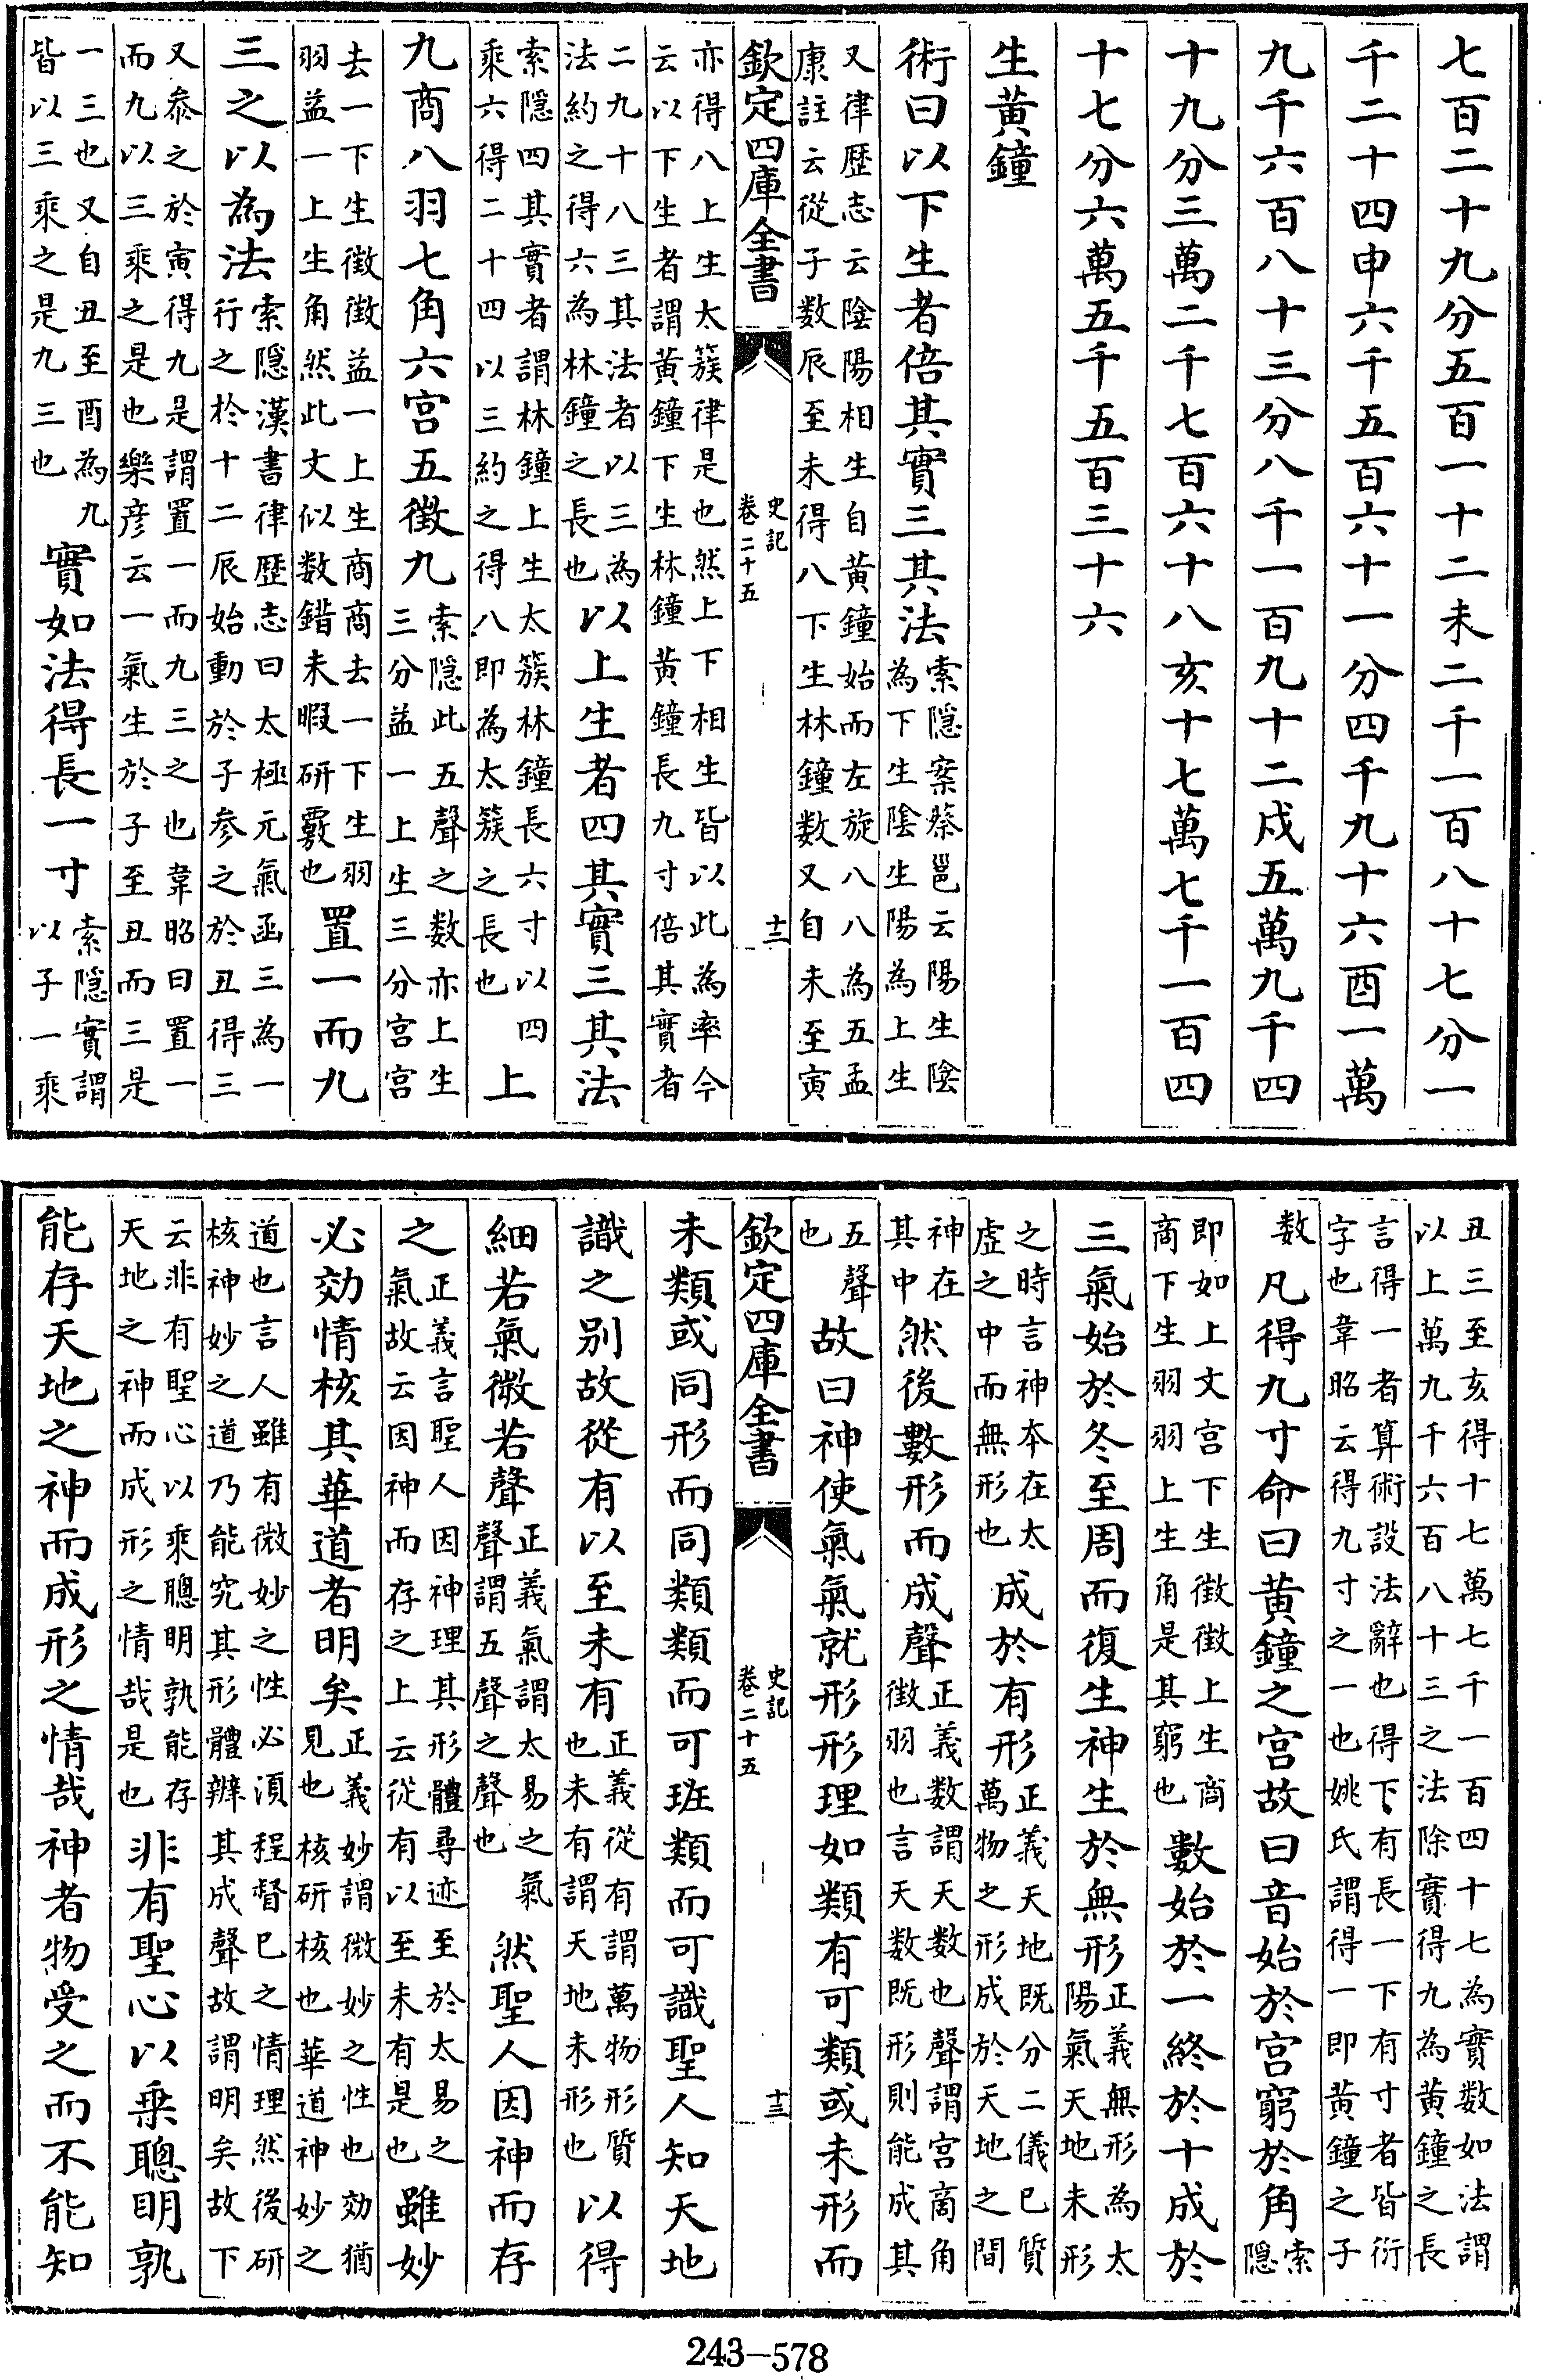 七百二十九分五百一十二未二千一百八十七分一
千二十四申六千五百六十一分四千九十六酉一萬
九千六百八十三分八千一百九十二戍五萬九千四
十九分三萬二千七百六十八亥十七萬七千一百四
十七分六萬五千五百三十六
生黄鐘
術曰以下生者倍其實三其法
索隠案蔡邕云陽生隂
為下生隂生陽為上生
又律歴志云隂陽相生自黄鐘始而左旋八八為五孟
康註云從子数辰至未得八下生林鐘数又自未至寅
欽定四庫全書
史記
卷二十五
十二
亦得八上生太簇律是也然上下相生皆以此為率今
云以下生者謂黄鐘下生林鐘黄鐘長九寸倍其實者
二九十八三其法者以三為
法約之得六為林鐘之長也
以上生者四其實三其法
索隠四其實者謂林鐘上生太簇林鐘長六寸以四
乘六得二十四以三約之得八即為太簇之長也
上
九商八羽七角六宫五徵九
索隠此五聲之数亦上生
三分益一上生三分宫宫
去一下生徵徵益一上生商商去一下生羽
羽益一上生角然此文似数錯未暇研覈也
置一而九
三之以為法
索隠漢書律歴志曰太極元氣函三為一
行之於十二辰始動於子參之於丑得三
又叅之於寅得九是謂置一而九三之也韋昭曰置一
而九以三乘之是也樂彦云一氣生於子至丑而三是
一三也又自丑至酉為九
皆以三乘之是九三也
實如法得長一寸
索隠實謂
以子一乘
丑三至亥得十七萬七千一百四十七為實数如法謂
以上萬九千六百八十三之法除實得九為黄鐘之長
言得一者算術設法辭也得下有長一下有寸者皆衍
字也韋昭云得九寸之一也姚氏謂得一即黄鐘之子
数
凡得九寸命曰黄鐘之宫故曰音始於宫窮於角
索
隠
即如上文宫下生徵徵上生商
商下生羽羽上生角是其窮也
數始於一終於十成於
三氣始於冬至周而復生神生於無形
正義無形為太
陽氣天地未形
之時言神本在太
虛之中而無形也
成於有形
正義天地既分二儀已質
萬物之形成於天地之間
神在
其中
然後數形而成聲
正義数謂天数也聲謂宫商角
徵羽也言天数既形則能成其
五聲
也
故曰神使氣氣就形形理如類有可類或未形而
欽定四庫全書
史記
卷二十五
十三
未類或同形而同類類而可班類而可識聖人知天地
識之别故從有以至未有
正義從有謂萬物形質
也未有謂天地未形也
以得
細若氣微若聲
正義氣謂太易之氣
聲謂五聲之聲也
然聖人因神而存
之
正義言聖人因神理其形體尋迹至於太易之
氣故云因神而存之上云從有以至未有是也
雖妙
必効情核其華道者明矣
正義妙謂微妙之性也効猶
見也核研核也華道神妙之
道也言人雖有微妙之性必湏程督已之情理然後研
核神妙之道乃能究其形體辨其成聲故謂明矣故下
云非有聖心以乘聰明孰能存
天地之神而成形之情哉是也
非有聖心以乗聰明孰
能存天地之神而成形之情哉神者物受之而不能知
243-578